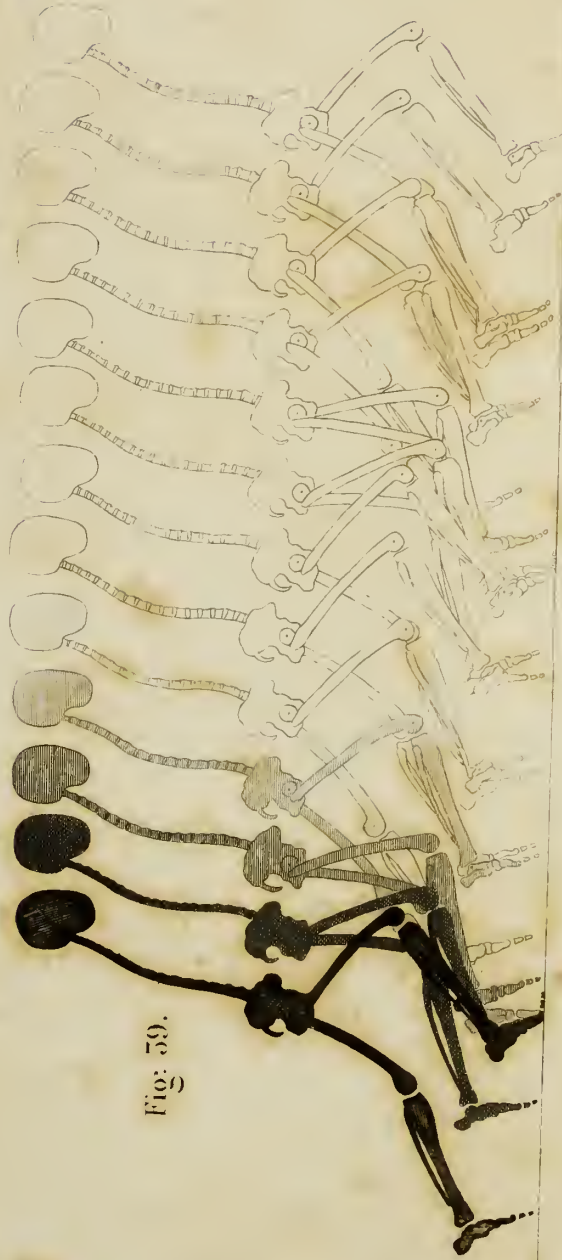 Fig: 59.